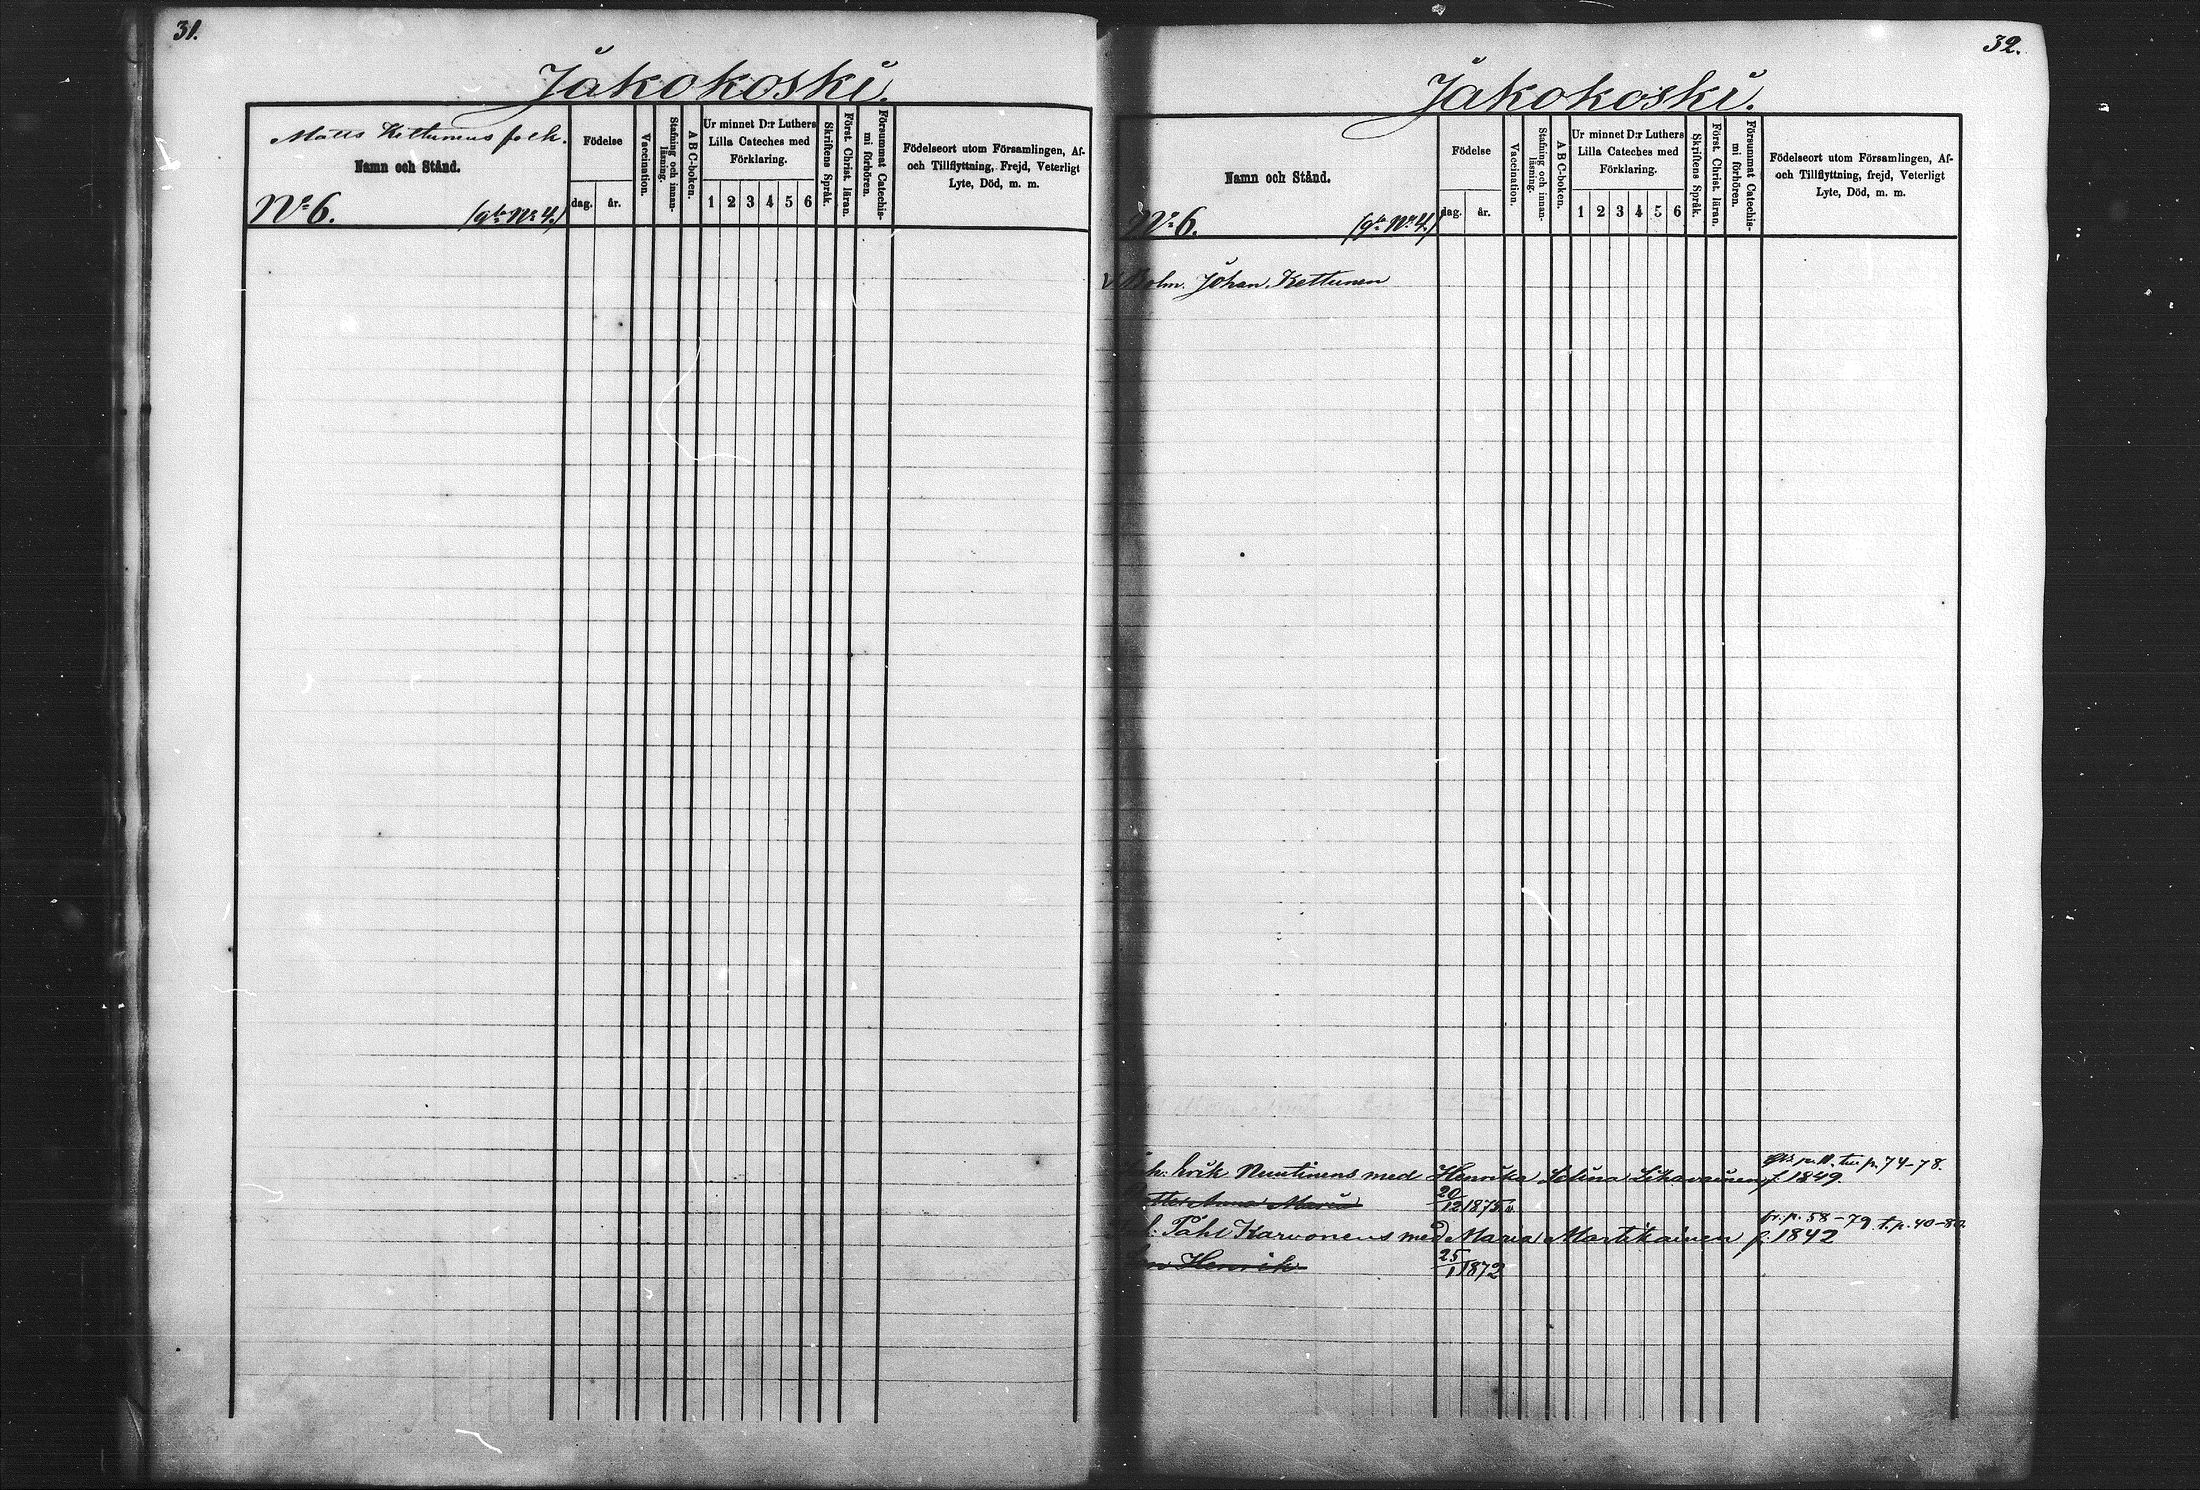 31.
Jakokoski.
Matts Kettunens folk.
Namn och Stånd.
No 6. (gla No 4.)
Födelse
dag. år.
Vaccination.
Stafning och innanläsning.
A B C-boken.
Ur minnet D:r Luthers
Lilla Cateches med
Förklaring.
1 2 3 4 5 6
Skriftens Språk.
Först. Christ. läran.
Försummat Catechismi förhören.
Födelseort utom Församlingen, Af-
och Tillflyttning, Frejd, Veterligt
Lyte, Död, m. m.
32.
Jakokoski.
Namn och Stånd.
No 6. (gla No 4.)
Födelse
dag. år.
Vaccination.
Stafning och innanläsning.
A B C-boken.
Ur minnet D:r Luthers
Lilla Cateches med
Förklaring.
1 2 3 4 5 6
Skriftens Språk.
Först. Christ. läran.
Försummat Catechismi förhören.
Födelseort utom Församlingen, Af-
och Tillflyttning, frejd, Veterligt
Lyte, Död, m. m.
Bolm. Johan Kettunen
p. 74-78.
Erik Nuutinens med Henrika Lovina Lihavainen f. 1849.
Anna Maria 20/12 1875
fr. p. 58-79. t. p. 40-80
Påhl Karvonens med Maria Martikainen f. 1842
Henrik 25/1 1872